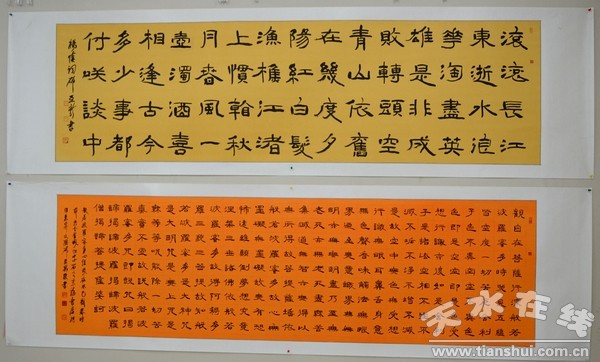 滾滾長江
東逝水浪
華淘盡英
雄是非成
敗轉頭空
青山依舊
在幾度夕
陽紅白髮
漁樵江渚
上慣秋
月春風一
壺濁酒喜
相逢古今
多少事都
付咲談中
楊慎詞
書
觀自在菩薩行深般若
波羅蜜多時照見五蘊
皆空度一切苦厄舍利
子色不異空空不異色
色即是空空即是色受
想行識亦復如是舍利
子是諸法空相不生不
滅不垢不淨不增不減
是故空中無色無受想
行識無眼耳鼻舌身意
無色聲香味觸法無眼
界乃至無意識界無無
明亦無無明盡乃至無
老死亦無老死盡無苦
集滅道無智亦無得以
無所得故菩提薩埵依
般若波羅蜜多故心無
罣礙無罣礙故無有恐
怖遠離顛倒夢想究竟
涅槃三世諸佛依般若
波羅蜜多故得阿耨多
羅三藐三菩提故知般
若波羅蜜多是大神咒
是大明咒是無上咒是
無等等咒能除一切苦
真實不虛故說般若波
羅蜜多咒即說咒曰揭
諦揭諦波羅揭諦波羅
僧揭諦菩提薩婆訶
天水在线
www.tianshui.com.cn